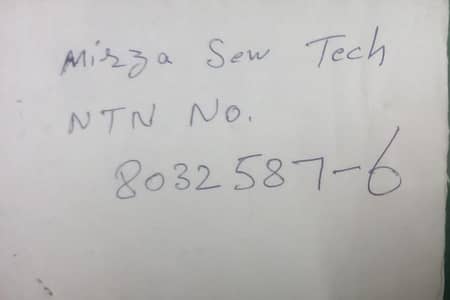 Mirza Sew Tech
NTN No.
8032587-6